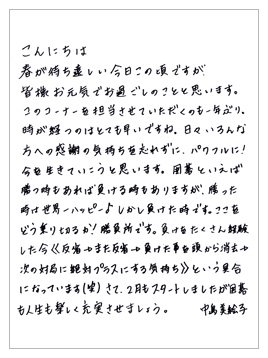 こんにちは
春が待ち遠しい今日この頃ですが、
皆様お元気でお過ごしのことと思います。
このコーナーを担当させていただくのも一年ぶり。
時が経つのはとても早いですね。日々いろんな
方への感謝の気持ちを忘れずに、パワフルに!
今を生きていこうと思います。囲碁といえば
勝つ時もあれば負ける時もありますが、勝った
時は世界一ハッピー♪しかし負けた時です。ここを
どう乗り切るかが!勝負所です。負けをたくさん経験
した今《反省→また反省→負けた事を頭から消去→
次の対局に絶対プラスにする気持ち》という具合
になっています(笑)さて、2月もスタートしましたが囲碁
も人生も楽しく充実させましょう。 中島美絵子